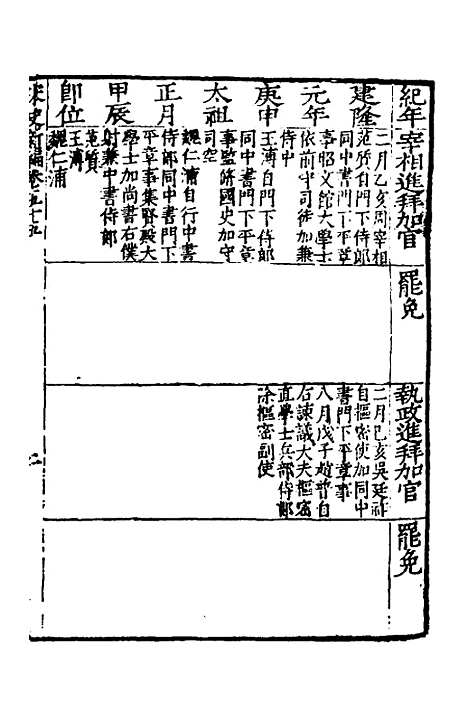 紀年 宰相進拜加官 罷免 執政進拜加官 罷免
建隆
元年
庚申
太祖
正月
甲辰
即位
二月乙亥周宰相
范質自門下侍郎
同中書門下平章
事昭文館大學士
依前守司徒加兼
侍中
王溥自門下侍郎
同中書門下平章
事監脩國史加守
司空
魏仁浦自行中書
侍郎同中書門下
平章事集賢殿大
學士加尚書右僕
射兼中書侍郎
范質
王溥
魏仁浦
二月乙亥吳廷祚
自樞密使加同中
書門下平章事
八月戊子趙普自
右諫議大夫樞密
直學士兵部侍郎
除樞密副使
宋史新編卷之五十五